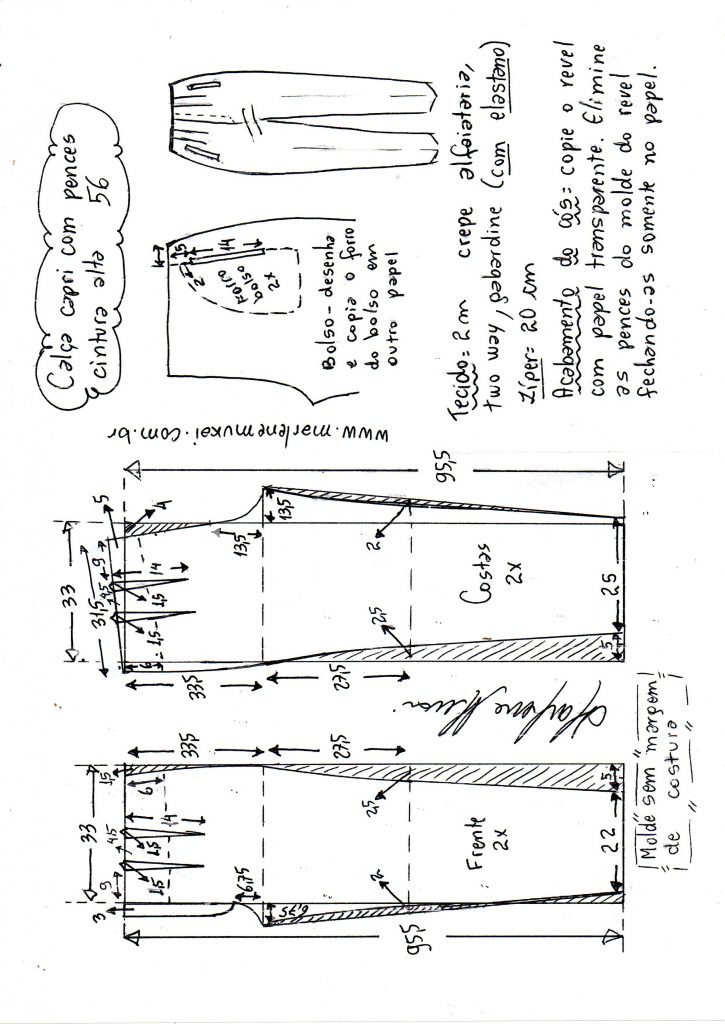 Calça capri com pences
cintura alta 56
www.marlenemukai.com.br
33
3
9
4,5
1,5
1,5
1,5
14
6
33,5
6,75
6,75
27,5
2
2,5
Frente
2x
22
5
95,5
33
31,5
9
5
4
4,5
14
1,5
1,5
6
33,5
13,5
13,5
27,5
2,5
2
Costas
2x
25
5
95,5
Molde sem margem
de costura
14
Forro
bolso
2x
Bolso - desenha
e copia o forro
do bolso em
outro papel
Tecido = 2 m crepe alfaiataria,
two way, gabardine (com elastano)
Zíper = 20 cm
Acabamento do cós = copie o revel
com papel transparente. Elimine
as pences do molde do revel
fechando-as somente no papel.